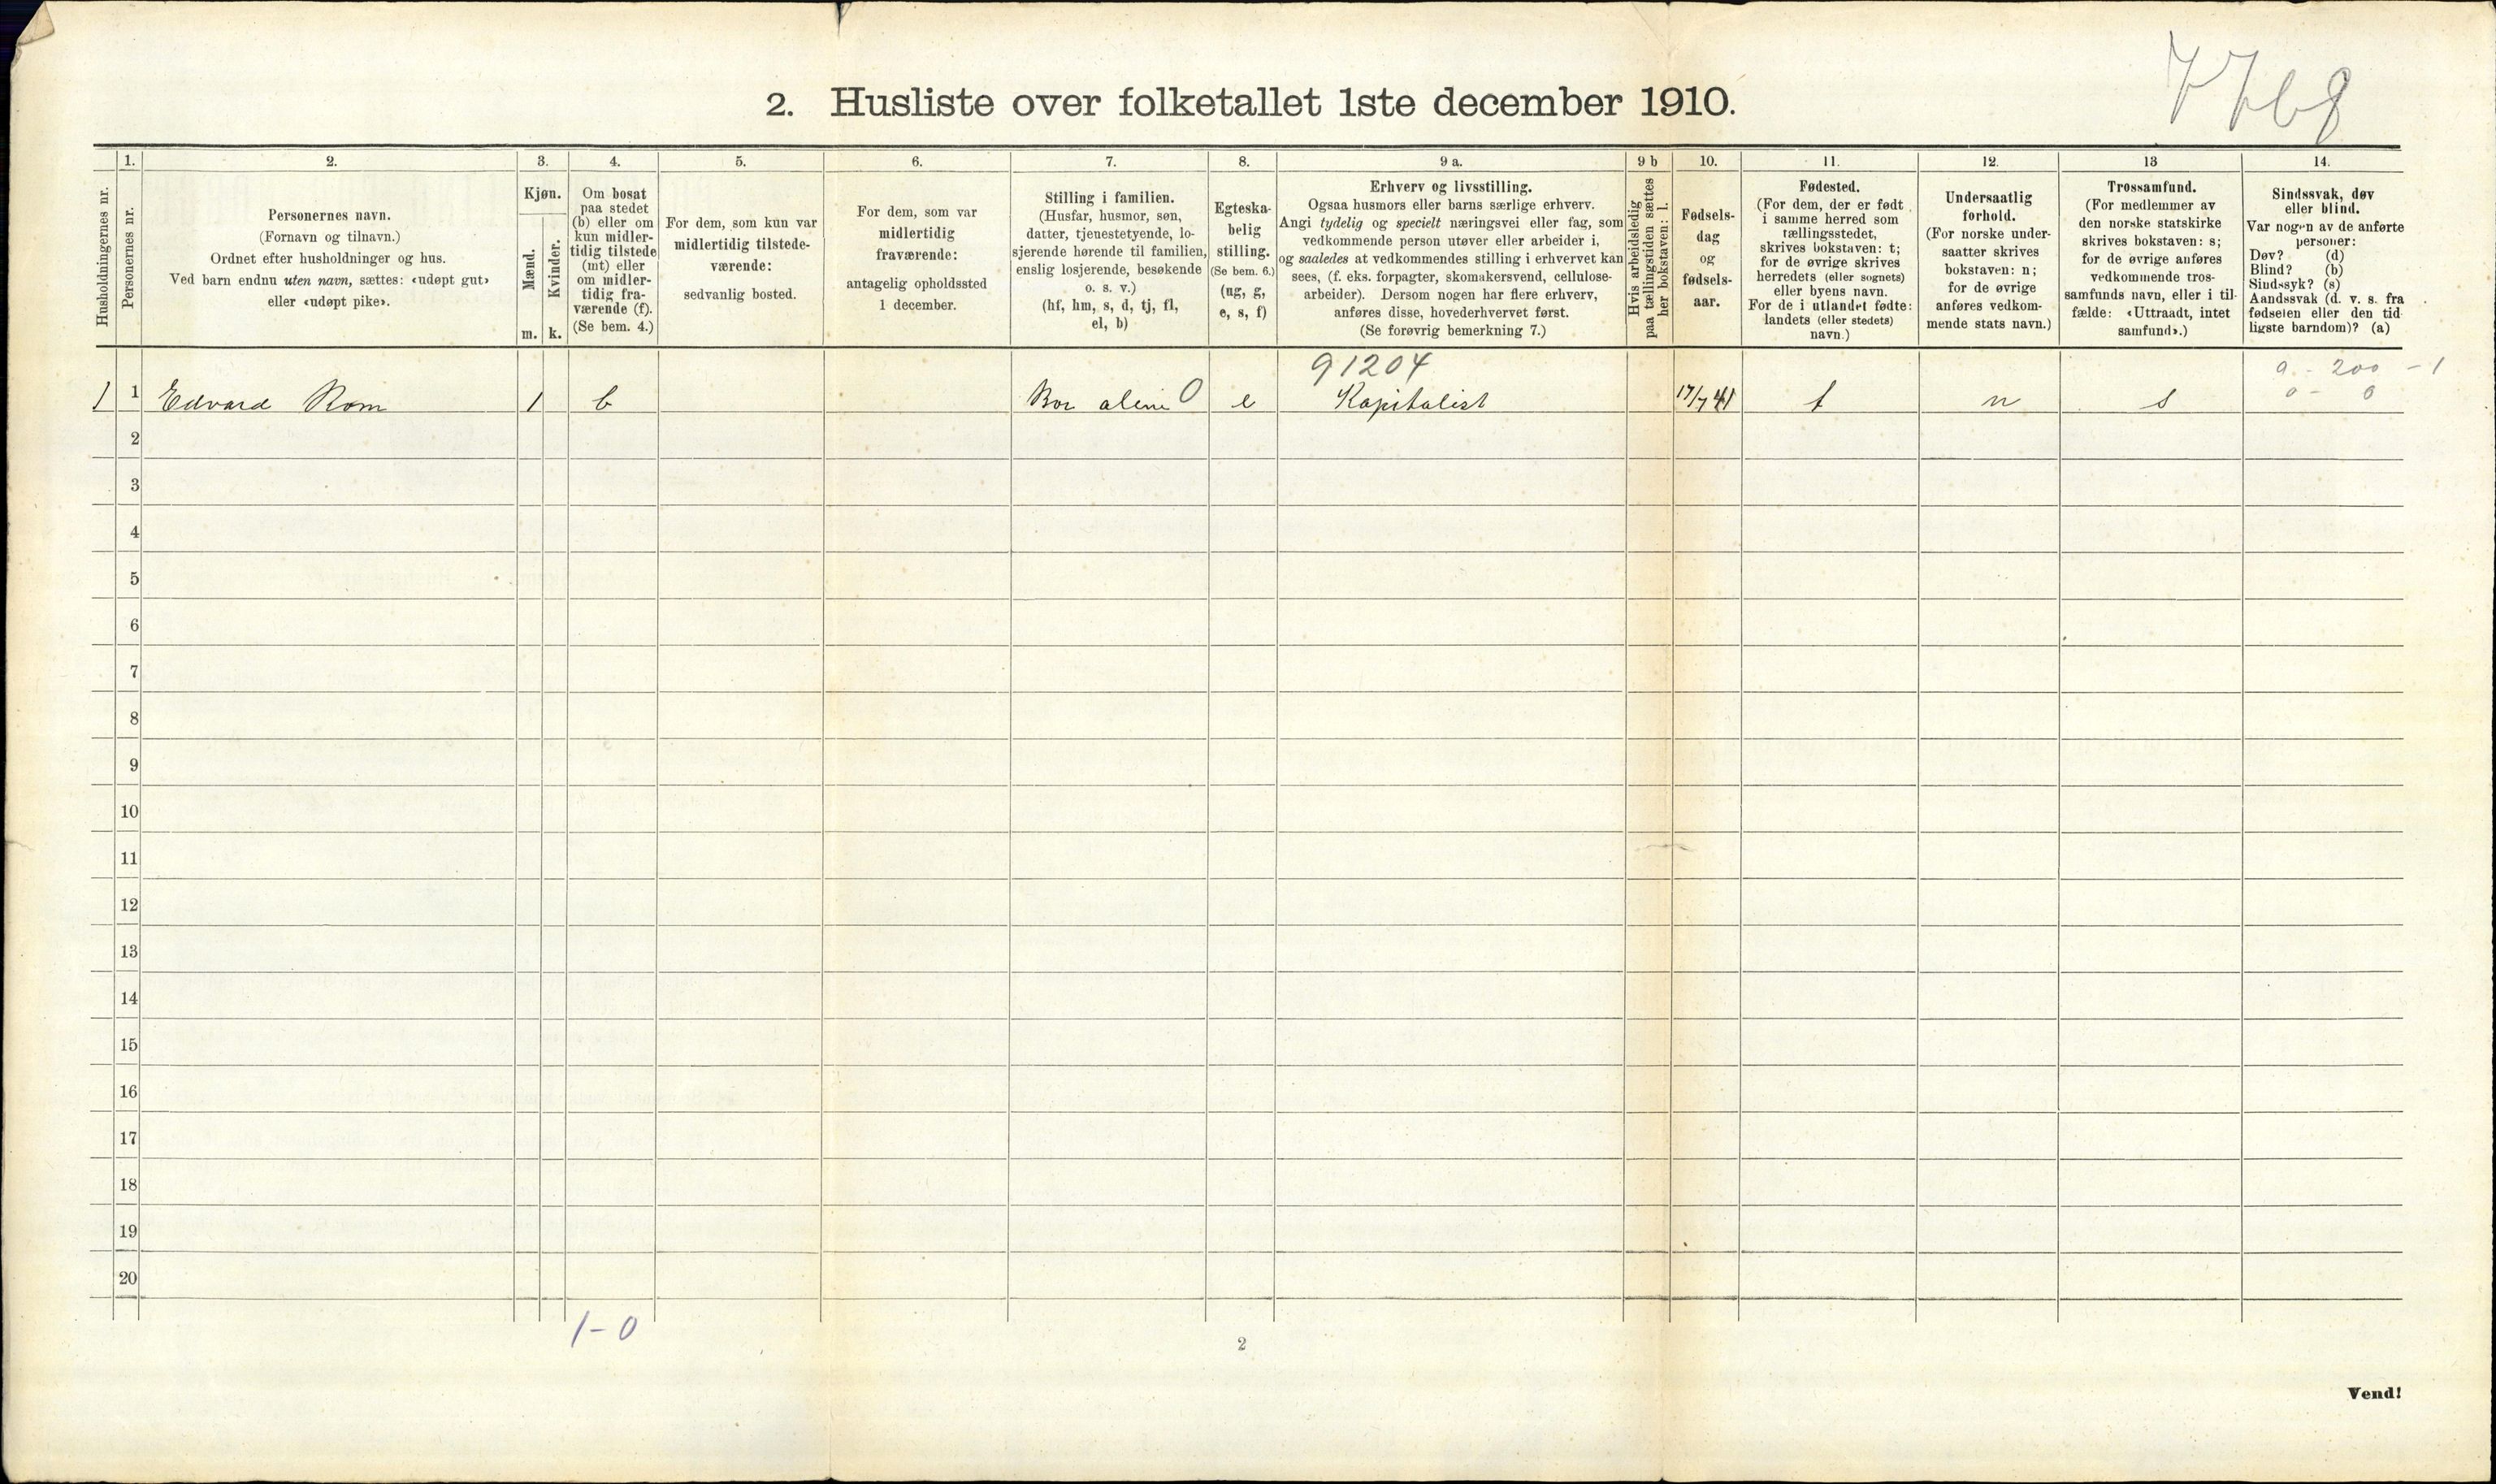 7768
2. Husliste over folketallet 1ste december 1910.
Husholdningernes nr.
1.
Personernes nr.
2.
Personernes navn.
(Fornavn og tilnavn.)
Ordnet efter husholdninger og hus.
Ved barn endnu uten navn, sættes: «udøpt gut»
eller «udøpt pike».
3.
Kjøn.
Mænd.
Kvinder.
m. k.
4.
Om bosat
paa stedet
(b) eller om
kun midler-
tidig tilstede
(mt) eller
om midler-
tidig fra-
værende (f).
(Se bem. 4.)
5.
For dem, som kun var
midlertidig tilstede-
værende:
sedvanlig bosted.
6.
For dem, som var
midlertidig
fraværende:
antagelig opholdssted
1 december.
7.
Stilling i familien.
(Husfar, husmor, søn,
datter, tjenestetyende, lo-
sjerende hørende til familien,
enslig losjerende, besøkende
o. s. v.)
(hf, hm, s, d, tj, fl,
el, b)
8.
Egteska-
belig
stilling.
(Se bem. 6.)
(ug, g,
e, s, f)
9 a.
Erhverv og livsstilling.
Ogsaa husmors eller barns særlige erhverv.
Angi tydelig og specielt næringsvei eller fag, som
vedkommende person utøver eller arbeider i,
og saaledes at vedkommendes stilling i erhvervet kan
sees, (f. eks. forpagter, skomakersvend, cellulose-
arbeider). Dersom nogen har flere erhverv,
anføres disse, hovederhvervet først.
(Se forøvrig bemerkning 7.)
9 b
Hvis arbeidsledig
paa tællingstiden sættes
her bokstaven: l.
10.
Fødsels-
dag
og
fødsels-
aar.
11.
Fødested.
(For dem, der er født
i samme herred som
tællingsstedet,
skrives bokstaven: t;
for de øvrige skrives
herredets (eller sognets)
eller byens navn.
For de i utlandet fødte:
landets (eller stedets)
navn.)
12.
Undersaatlig
forhold.
(For norske under-
saatter skrives
bokstaven: n;
for de øvrige
anføres vedkom-
mende stats navn.)
13
Trossamfund.
(For medlemmer av
den norske statskirke
skrives bokstaven: s;
for de øvrige anføres
vedkommende tros-
samfunds navn, eller i til-
fælde: «Uttraadt, intet
samfund».)
14.
Sindssvak, døv
eller blind.
Var nogen av de anførte
personer:
Døv? (d)
Blind? (b)
Sindssyk? (s)
Aandssvak (d. v. s. fra
fødselen eller den tid-
ligste barndom)? (a)
91204
0 - 200 - 1
1 1 Edvard Rom 1 b Bor alene 0 e Kapitalist 17/7 41 t n s 0 - 0
2
3
4
5
6
7
8
9
10
11
12
13
14
15
16
17
18
19
20
1-0
2
Vend!